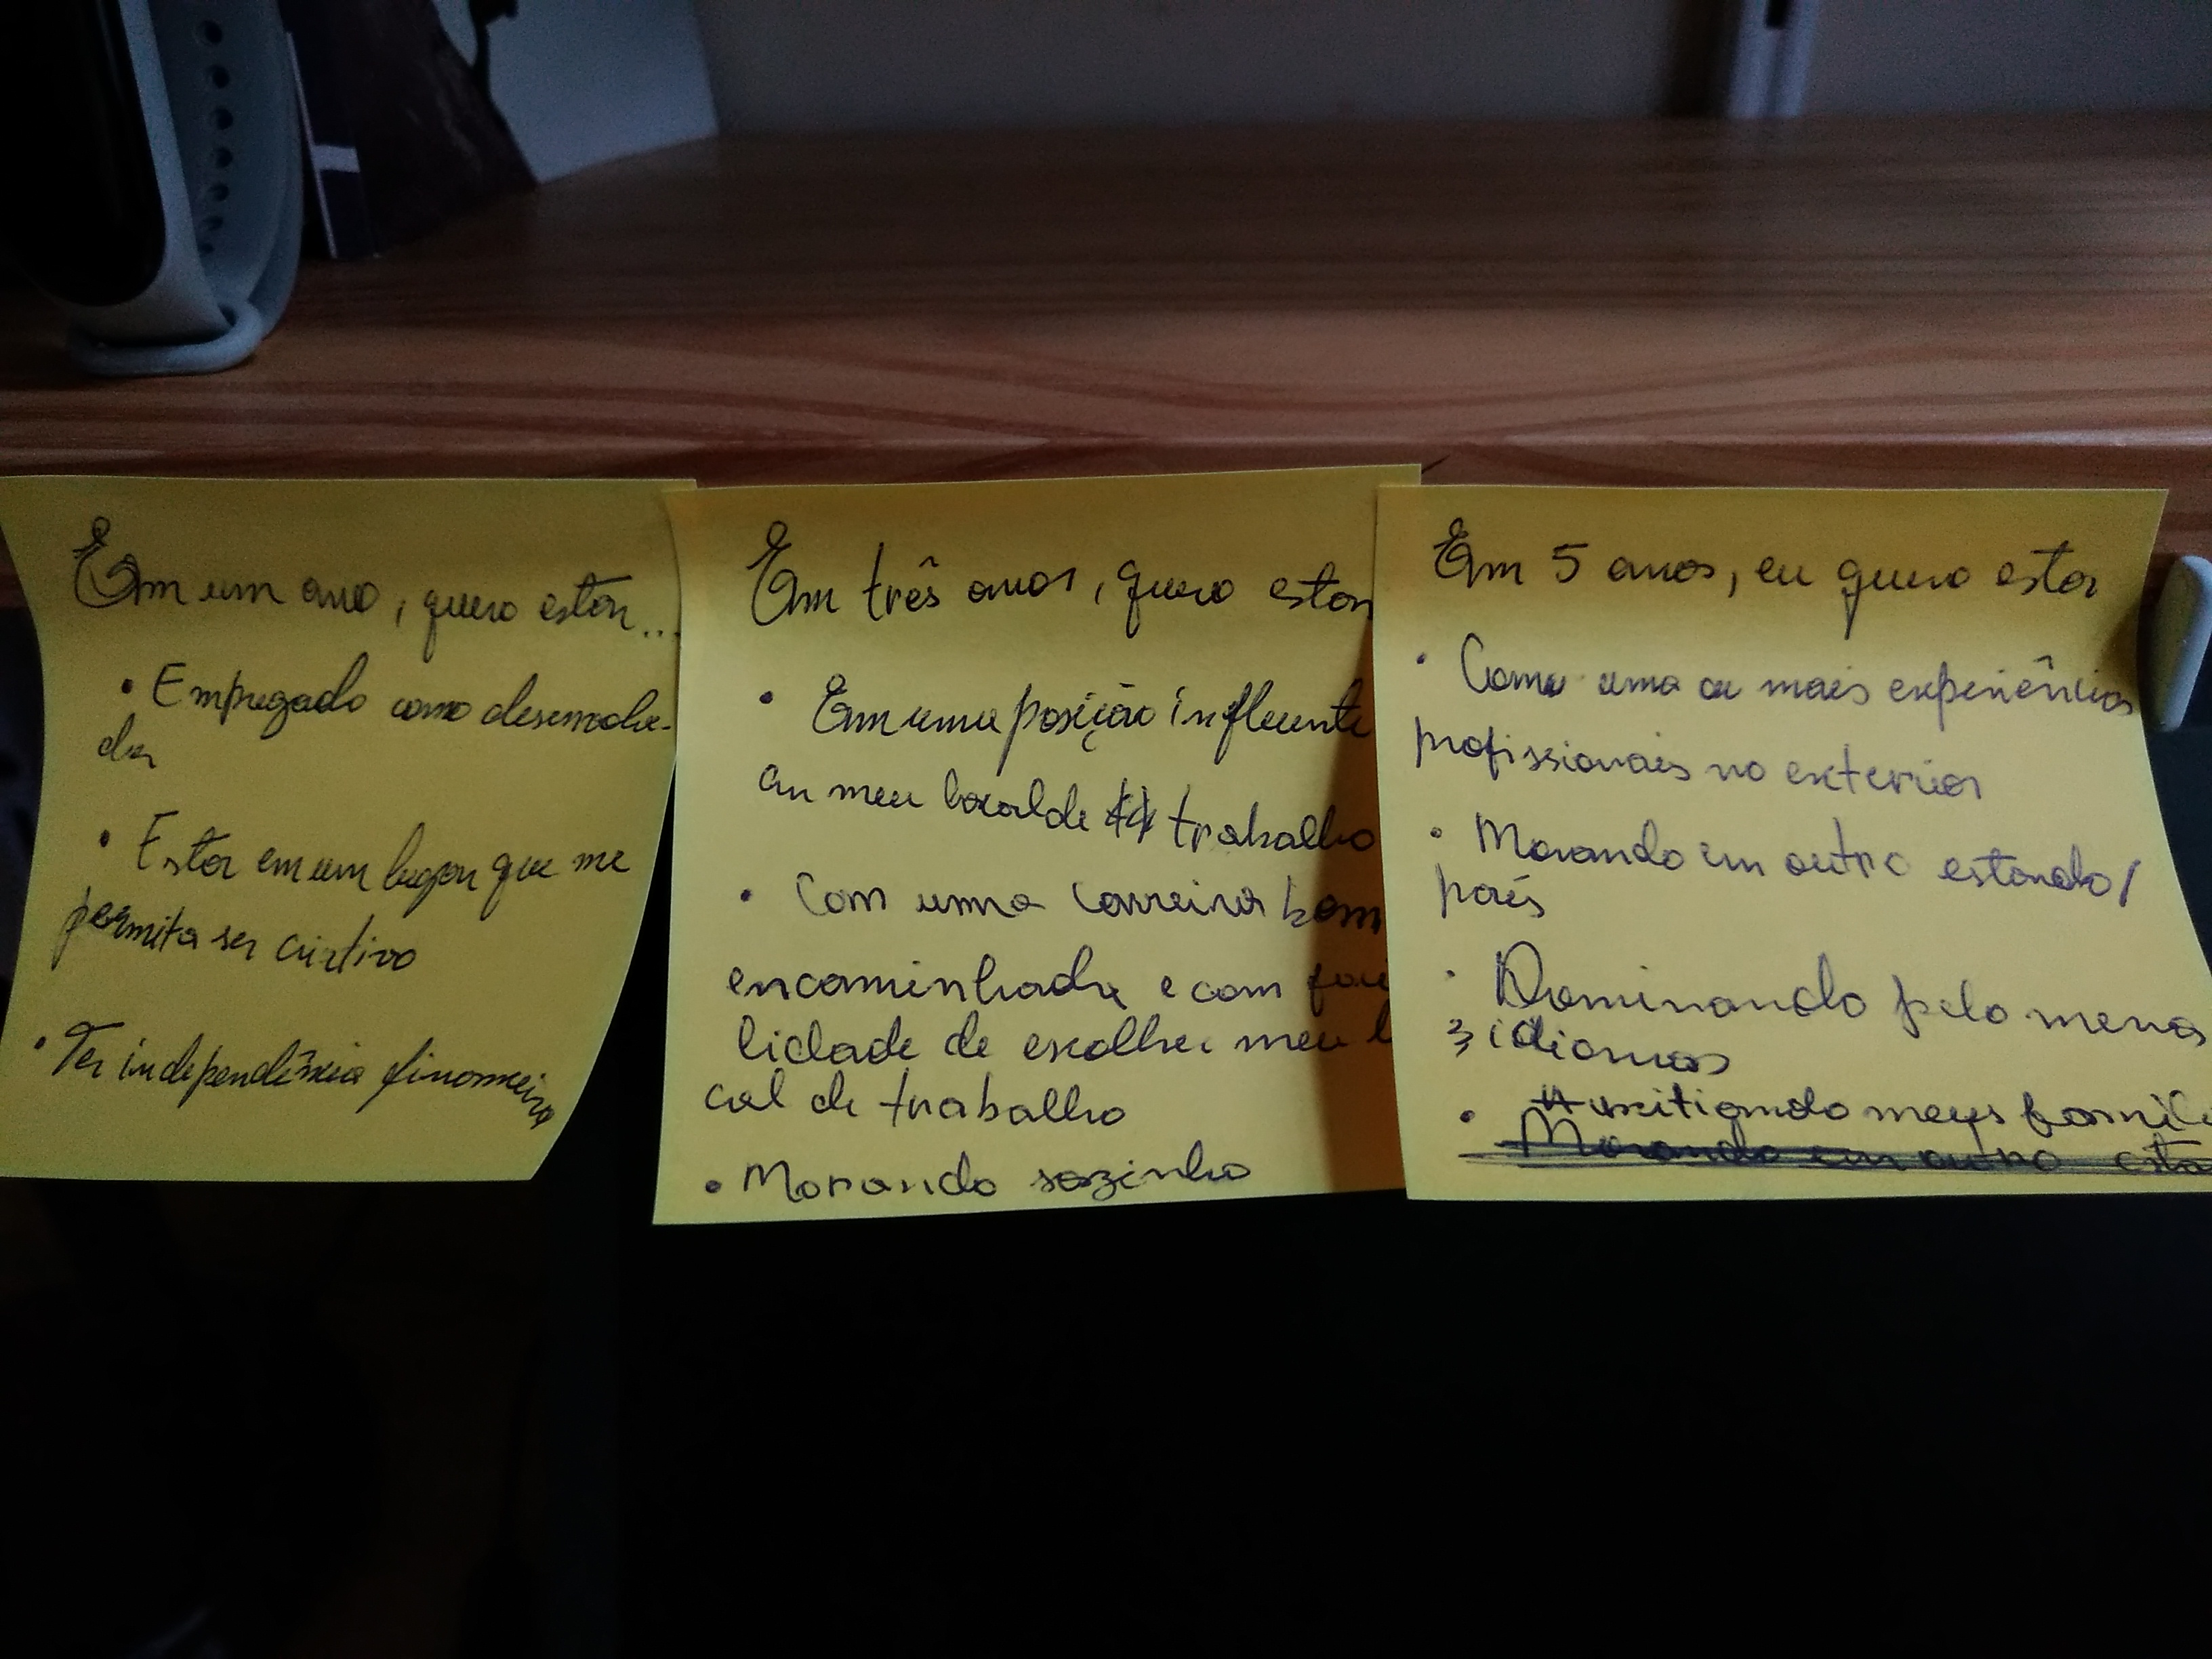 Em um ano, quero estar...
• Empregado como desenvolve-
dor
• Estar em um lugar que me
permita ser criativo
• Ter independência financeira
Em três anos, quero estar
• Em uma posição influente
em meu local de trabalho
• Com uma carreira bem
encaminhada e com faci
lidade de escolher meu l
cal de trabalho
• Morando sozinho
Em 5 anos, eu quero estar
• Com uma ou mais experiências
profissionais no exterior
• Morando em outro estado/
país
• Dominando pelo menos
3 idiomas
• Auxiliando meus famili
Morando em outro esta